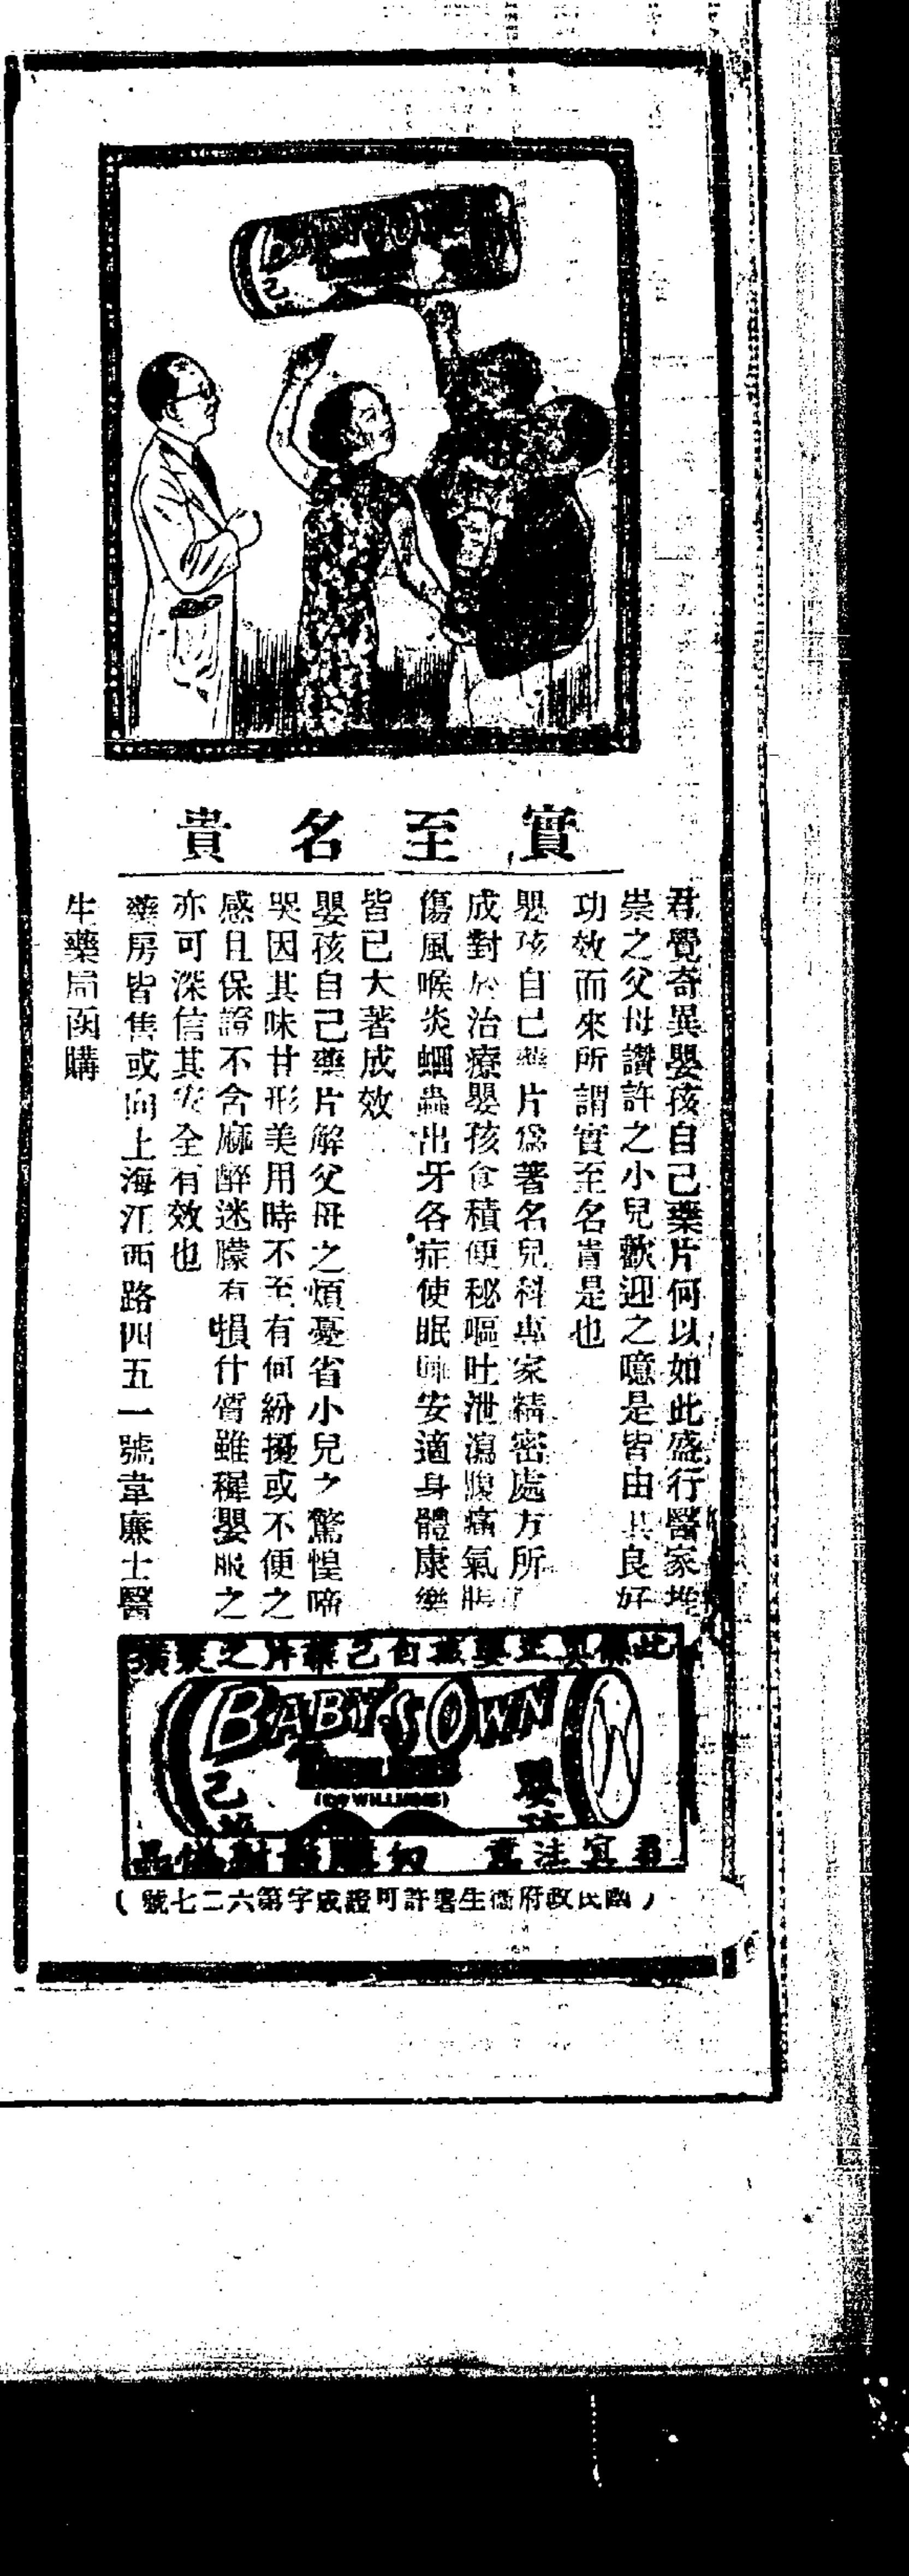 實至名貴
君覺奇異嬰孩自己藥片何以如此盛行醫家推
崇之父母讚許之小兒歡迎之噫是皆由其良好
功效而來所謂實至名貴是也
嬰孩自己藥片為著名兒科專家精密處方所
成對於治療嬰孩食積便秘嘔吐泄瀉腹痛氣脹
傷風喉炎蛔蟲出牙各症使眠睡安適身體康樂
皆已大著成效
嬰孩自己藥片解父母之煩憂省小兒之驚惶啼
哭因其味甘形美用時不至有何紛擾或不便之
感且保證不含麻醉迷朦有損什質雖穉嬰服之
亦可深信其安全有效也
藥房皆售或向上海江西路四五一號韋廉士醫
生藥局函購
此係真正嬰孩自己藥片之聚璜
BABY'S OWN
TABLETS
(DR WILLIAMS)
嬰孩
自己
君宜注意
(國民政府衛生署許可證成字第六二七號)